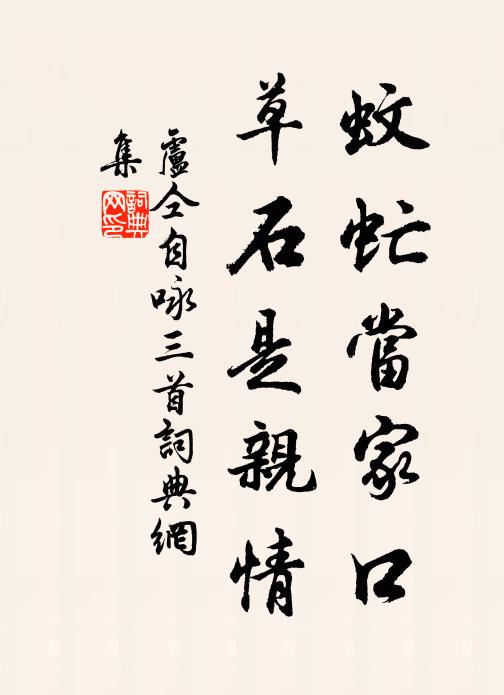 蚊虻當家口
草石是親情
盧仝自咏三首詞典網
集
詞典網印